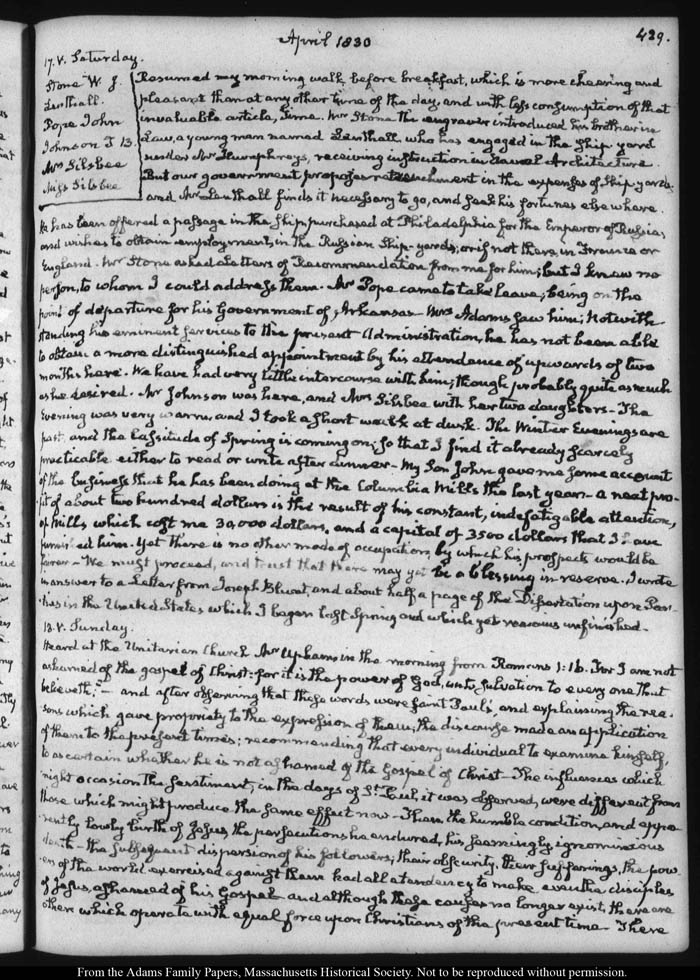 April 1830
429.
17. V. Saturday.
Stone W. J.
Lenthall.
Pope John
Johnson J
Mrs Silsbee
Miss Silsbee
Resumed my morning walk before breakfast, which is more cheering and
pleasant than at any other time of the day, and with less consumption of that
invaluable article, time. Mr Stone the engraver introduced his brother in
Law, a young man named Lenthall who has engaged in the ship yard
under Mr Humphreys, receiving instruction in Naval Architecture.
But our government proposes retrenchment in the expenses of Ship-yards
and Mr Lenthall finds it necessary to go, and seek his fortunes else where.
He has been offered a passage in the Ship purchased at Philadelphia for the Emperor of Russia,
and wishes to obtain employment, in the Russian Ship-yards; or if not there, in France or
England. Mr Stone asked Letters of Recommendation from me for him; but I knew no
person, to whom I could address them. Mr Pope came to take leave; being on the
point of departure for his Government of Arkansas. Mrs Adams saw him; Notwith
standing his eminent services to the present Administration, he has not been able
to obtain a more distinguished appointment by his attendance of upwards of two
months here. We have had very little intercourse with him; though probably quite as much
as he desired. Mr Johnson was here, and Mrs Silsbee with her two daughters - The
Evening was very warm, and I took a short walk at dusk. The Winter Evenings are
past, and the lassitude of Spring is coming on; so that I find it already scarcely
practicable either to read or write after dinner - My Son John gave me some account
of the business that he has been doing at the Columbia Mills the last year - a neat pro-
fit of about two hundred dollars is the result of his constant, indefatigable attention,
of Mills which cost me 30,000 dollars, and a capital of 3500 dollars that I have
furnished him - Yet there is no other mode of occupation, by which his prospects would be
fairer - We must proceed, and trust that there may yet be a blessing in reserve. I wrote
in answer to a Letter from Joseph Blunt, and about half a page of the Dissertation upon Par-
ties in the United States which I began last Spring and which yet remains unfinished.
18. V. Sunday.
Heard at the Unitarian Church Mr Upham in the morning from Romans 1:16. For I am not
ashamed of the gospel of Christ: for it is the power of God, unto salvation to every one that
believeth;" - and after observing that these words were Saint Paul's, and explaining the rea-
sons which gave propriety to the expression of them, the discourse made an application
of them to the present times; recommending that every individual to examine himself,
to ascertain whether he is not ashamed of the Gospel of Christ - The influences which
might occasion the sentiment, in the days of St. Paul, it was observed, were different from
those which might produce the same effect now - Then the humble condition, and appa-
rently lowly birth of Jesus, the persecutions he endured, his seemingly ignominious
death - the subsequent dispersion of his followers, their obscurity, their sufferings, the pow-
ers of the world exercised against them had all a tendency to make even the disciples
of Jesus, ashamed of his Gospel and although these causes no longer exist, there are
others which operate with equal force upon Christians of the present time - There
From the Adams Family Papers, Massachusetts Historical Society. Not to be reproduced without permission.